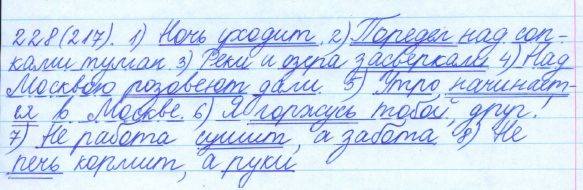 228(217). 1) Ночь уходит. 2) Поредел над соп-
ками туман 3) Реки и озера засверкали 4) Над
Москвою розовеют дали 5) Утро начинает-
ся в Москве. 6) Я горжусь тобой, друг!
7) Не работа сушит, а забота 8) Не
печь кормит, а руки